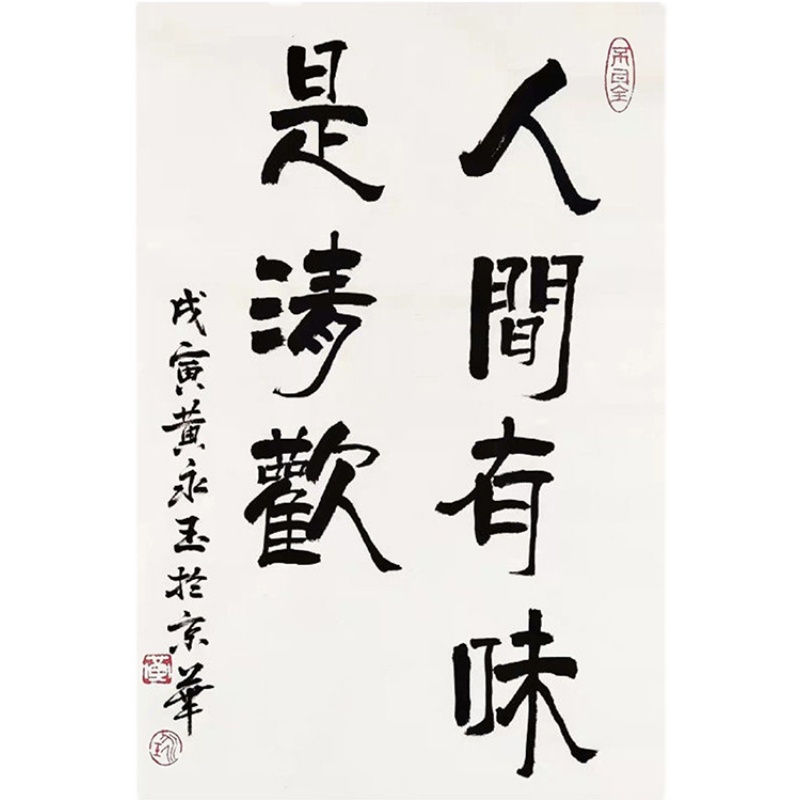 人間有味
是清歡
戊寅黄永玉於京華
黄